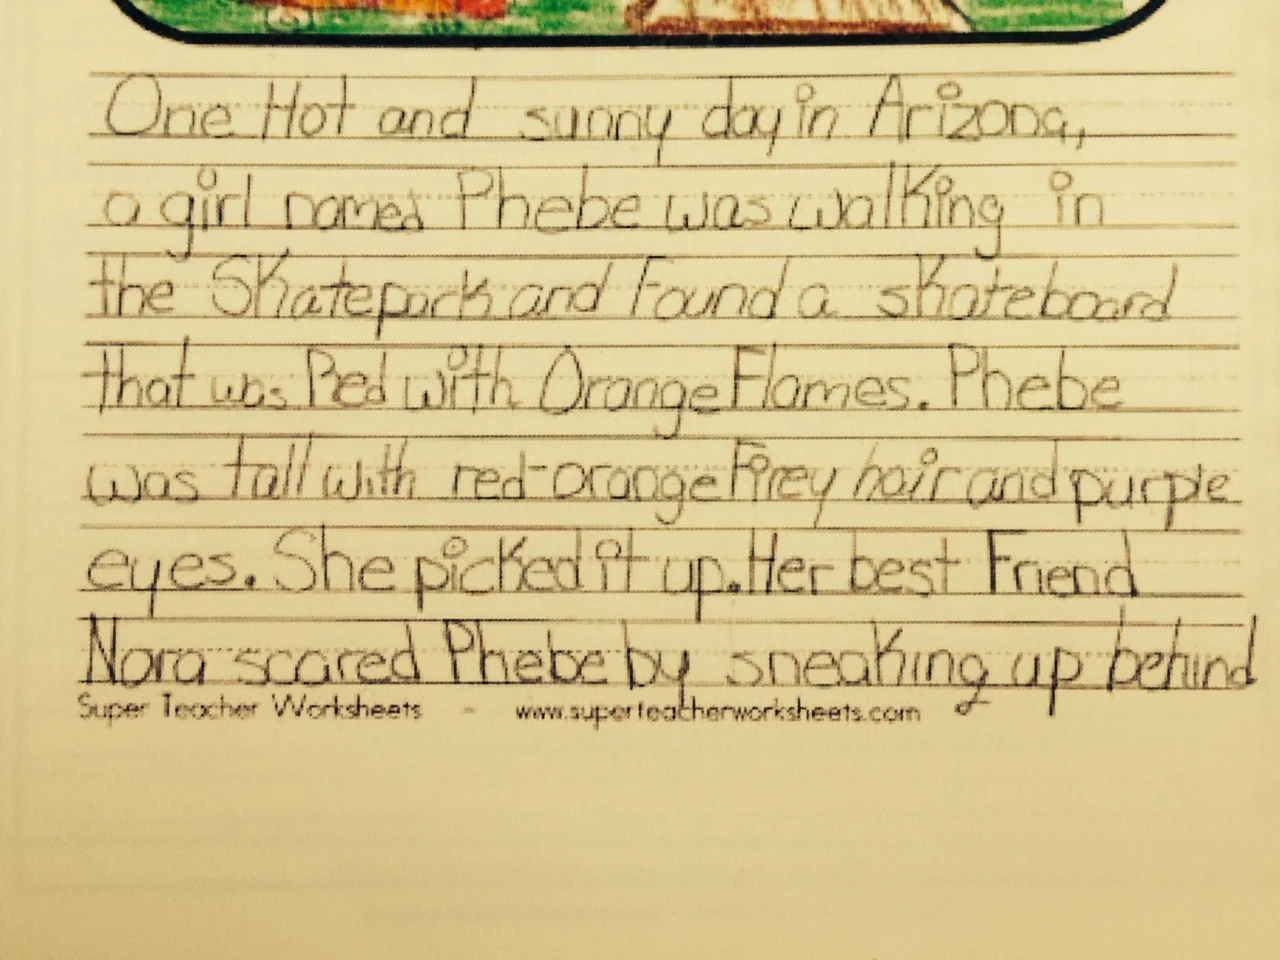 One Hot and sunny day in Arizona,
a girl named Phebe was walking in
the Skatepark and Found a skateboard
that was Red with Orange Flames. Phebe
was tall with red-orange Firey hair and purple
eyes. She picked it up. Her best Friend
Nora scared Phebe by sneaking up behind
Super Teacher Worksheets - www.superteacherworksheets.com